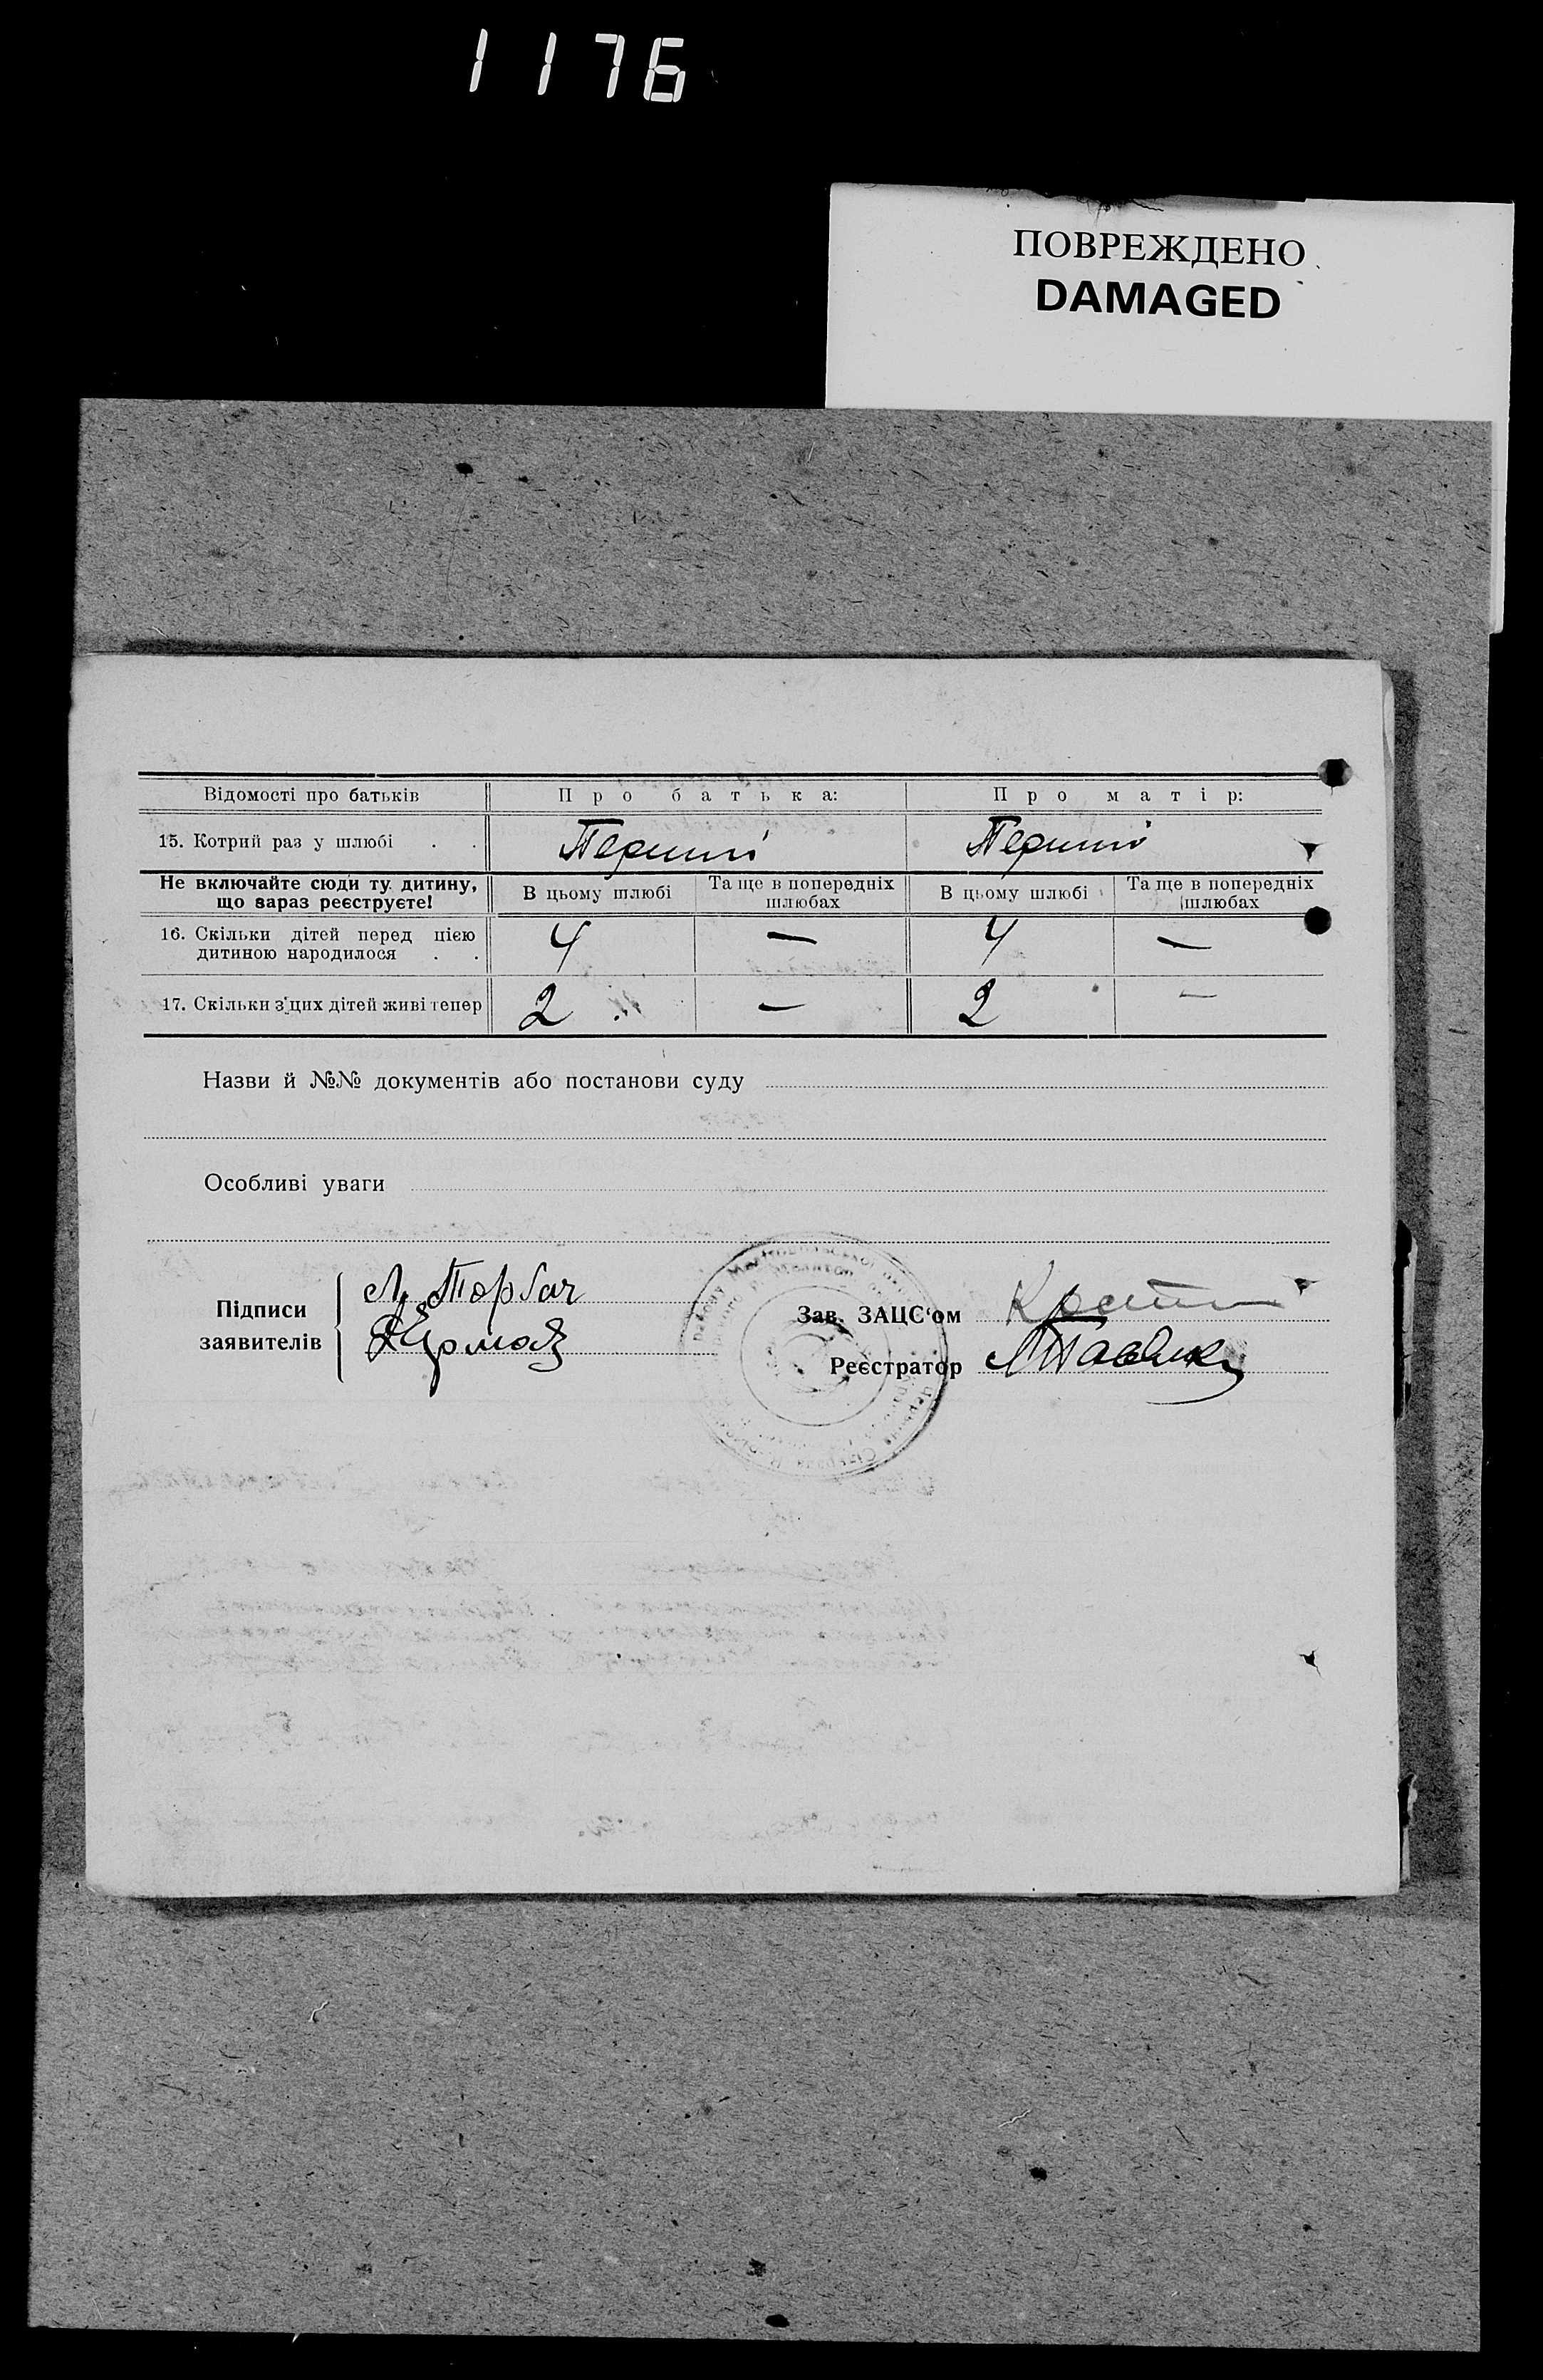 1176
ПОВРЕЖДЕНО
DAMAGED
Відомості про батьків Про батька: Про матір:
15. Котрий раз у шлюбі . . Перший Перший
Не включайте сюди ту дитину, що зараз реєструєте! В цьому шлюбі Та ще в попередніх шлюбах В цьому шлюбі Та ще в попередніх шлюбах
16. Скільки дітей перед цією дитиною народилося . . 4 — 4 —
17. Скільки з цих дітей живі тепер 2 — 2 —
Назви й №№ документів або постанови суду
Особливі уваги
Підписи заявителів
Л. Торбач
Зав. ЗАЦС‘ом
Реєстратор